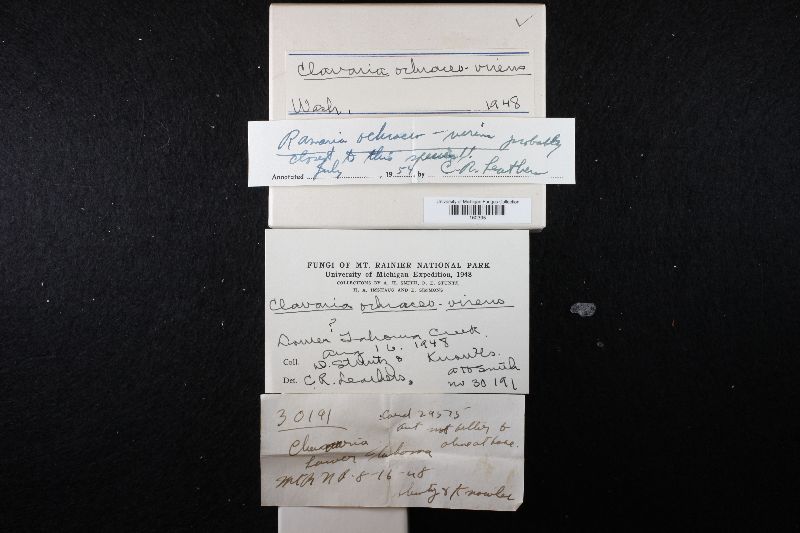 Clavaria ochraceo-virens
Wash. 1948
Ramaria ochraceo-virens probably
closest to this species!!
Annotated July, 1954 by C.R. Leathers
University of Michigan Fungus Collection
FUNGI OF MT. RAINIER NATIONAL PARK
University of Michigan Expedition, 1948
COLLECTIONS BY A. H. SMITH, D. E. STUNTZ
H. A. IMSHAUG AND E. SIMMONS
Clavaria ochraceo-virens
?
Lower Tahoma Creek.
Aug 16, 1948
Coll. D. Stuntz & Knowles.
Det. C.R. Leathers.
AH Smith
no 30191
30191
Card 29575
but not yellow
Clavaria
at base.
Lower Tahoma
Mt R N P - 8-16-48
Stuntz & Knowles